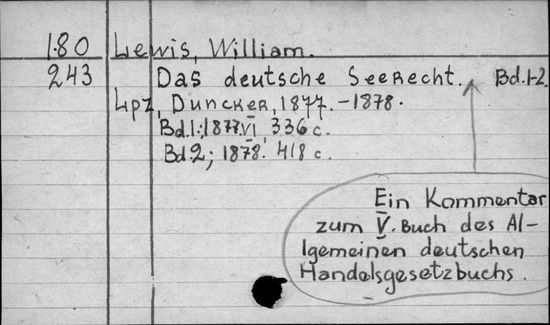 180 Lewis, William.
243 Das deutsche Seerecht. Bd.1-2.
Lpz, Duncker, 1877.-1878.
Bd.1.; 1877. VI, 336 c.
Bd.2; 1878. 418 c.
Ein Kommentar
zum V. Buch des Al-
lgemeinen deutschen
Handelsgesetzbuchs.